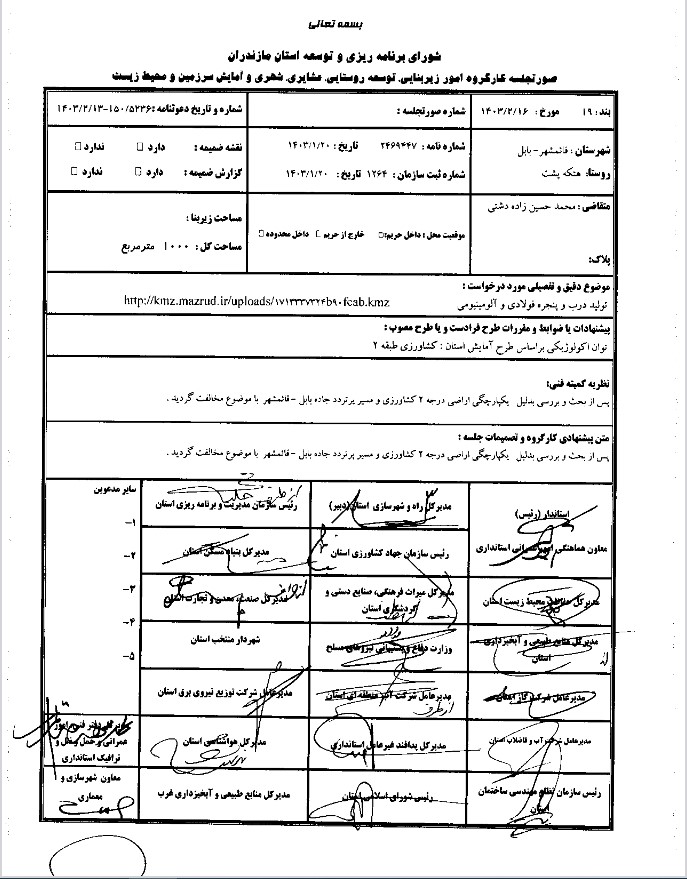 بسمه تعالی
شورای برنامه ریزی و توسعه استان مازندران
صورتجلسه کارگروه امور زیربنایی، توسعه روستایی، عشایری، شهری و آمایش سرزمین و محیط زیست
بند: ۱۹ مورخ: ۱۴۰۳/۲/۱۶
شماره صورتجلسه :
شماره و تاریخ دعوتنامه: ۱۵۰/۵۲۳۶-۱۴۰۳/۲/۱۳
شهرستان : قائمشهر- بابل
روستا: هتکه پشت
شماره نامه : ۲۴۶۹۴۴۷ تاریخ : ۱۴۰۳/۱/۲۰
شماره ثبت سازمان : ۱۲۶۴ تاریخ : ۱۴۰۳/۱/۲۰
نقشه ضمیمه : دارد □ ندارد □
گزارش ضمیمه : دارد □ ندارد □
متقاضی : محمد حسین زاده دشتی
پلاک:
موقعیت محل : داخل حریم: □ خارج از حریم □ داخل محدوده □
مساحت زیربنا :
مساحت کل : ۱۰۰۰ مترمربع
موضوع دقیق و تفصیلی مورد درخواست :
تولید درب و پنجره فولادی و آلومینیومی http://kmz.mazrud.ir/uploads/۱۷۱۳۳۳۷۳۲۴b۹۰fcab.kmz
پیشنهادات یا ضوابط و مقررات طرح فرادست و یا طرح مصوب :
توان اکولوژیکی براساس طرح آمایش استان : کشاورزی طبقه ۲
نظریه کمیته فنی:
پس از بحث و بررسی بدلیل یکپارچگی اراضی درجه ۲ کشاورزی و مسیر پرتردد جاده بابل - قائمشهر با موضوع مخالفت گردید .
متن پیشنهادی کارگروه و تصمیمات جلسه :
پس از بحث و بررسی بدلیل یکپارچگی اراضی درجه ۲ کشاورزی و مسیر پرتردد جاده بابل - قائمشهر با موضوع مخالفت گردید .
استاندار (رئیس)
معاون هماهنگی امور عمرانی استانداری
مدیرکل راه و شهرسازی استان(دبیر)
رئیس سازمان مدیریت و برنامه ریزی استان
سایر مدعوین
۱-
۲-
۳-
۴-
۵-
رئیس سازمان جهاد کشاورزی استان
مدیرکل بنیاد مسکن استان
مدیرکل حفاظت محیط زیست استان
مدیرکل میراث فرهنگی، صنایع دستی و
گردشگری استان
مدیرکل صنعت، معدن و تجارت استان
مدیرکل منابع طبیعی و آبخیزداری
استان
وزارت دفاع و پشتیبانی نیروهای مسلح
شهردار منتخب استان
مدیرعامل شرکت گاز استان
مدیرعامل شرکت آب منطقه ای استان
مدیرعامل شرکت توزیع نیروی برق استان
مدیرعامل شرکت آب و فاضلاب استان
مدیرکل پدافند غیرعامل استانداری
مدیرکل هواشناسی استان
مدیرکل دفتر فنی امور
عمرانی و حمل و نقل و
ترافیک استانداری
رئیس سازمان نظام مهندسی ساختمان
استان
رئیس شورای اسلامی استان
مدیرکل منابع طبیعی و آبخیزداری غرب
معاون شهرسازی و
معماری